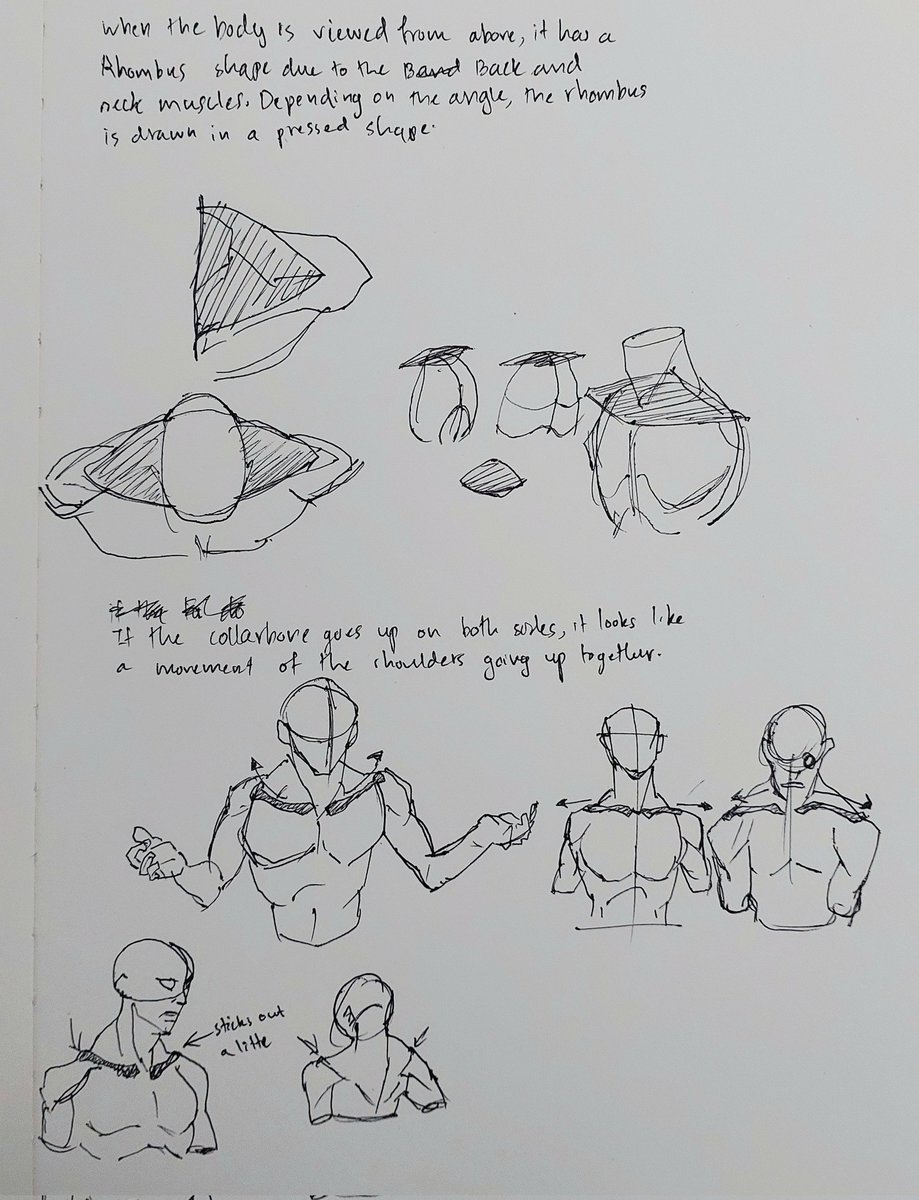 when the body is viewed from above, it has a
Rhombus shape due to the Band Back and
neck muscles. Depending on the angle, the rhombus
is drawn in a pressed shape.
If the collarbone goes up on both sides, it looks like
a movement of the shoulders going up together.
sticks out
a litte